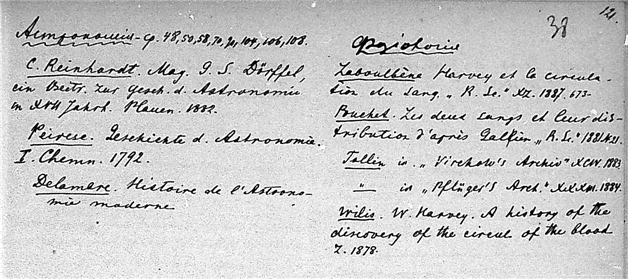 121.
38
Астрономия - ср. 48, 50, 58, 70, 71, 104, 106, 108.
C. Reinhardt. Mag. G. S. Dörffel,
ein Beitr. zur Gesch. d. Astronomie
im XVII Jahrh. Plauen. 1882.
Peirese. Geschichte d. Astronomie.
I. Chemn. 1792.
Delambre. Histoire de l'Astrono-
mie moderne
Физиология
Laboulbène Harvey et la circula-
tion du sang „R. Sc." XL. 1887. 673-
Pouchet. Les deux sangs et leur dis-
tribution d'après Galien „R. Sc." 1881.
Tollin in „Virchow's Archiv" XCIV. 1883
—„— in „Pflüger's Arch." XXXIII. 1884.
Wilis. W. Harvey. A history of the
discovery of the circul of the blood
L. 1878.